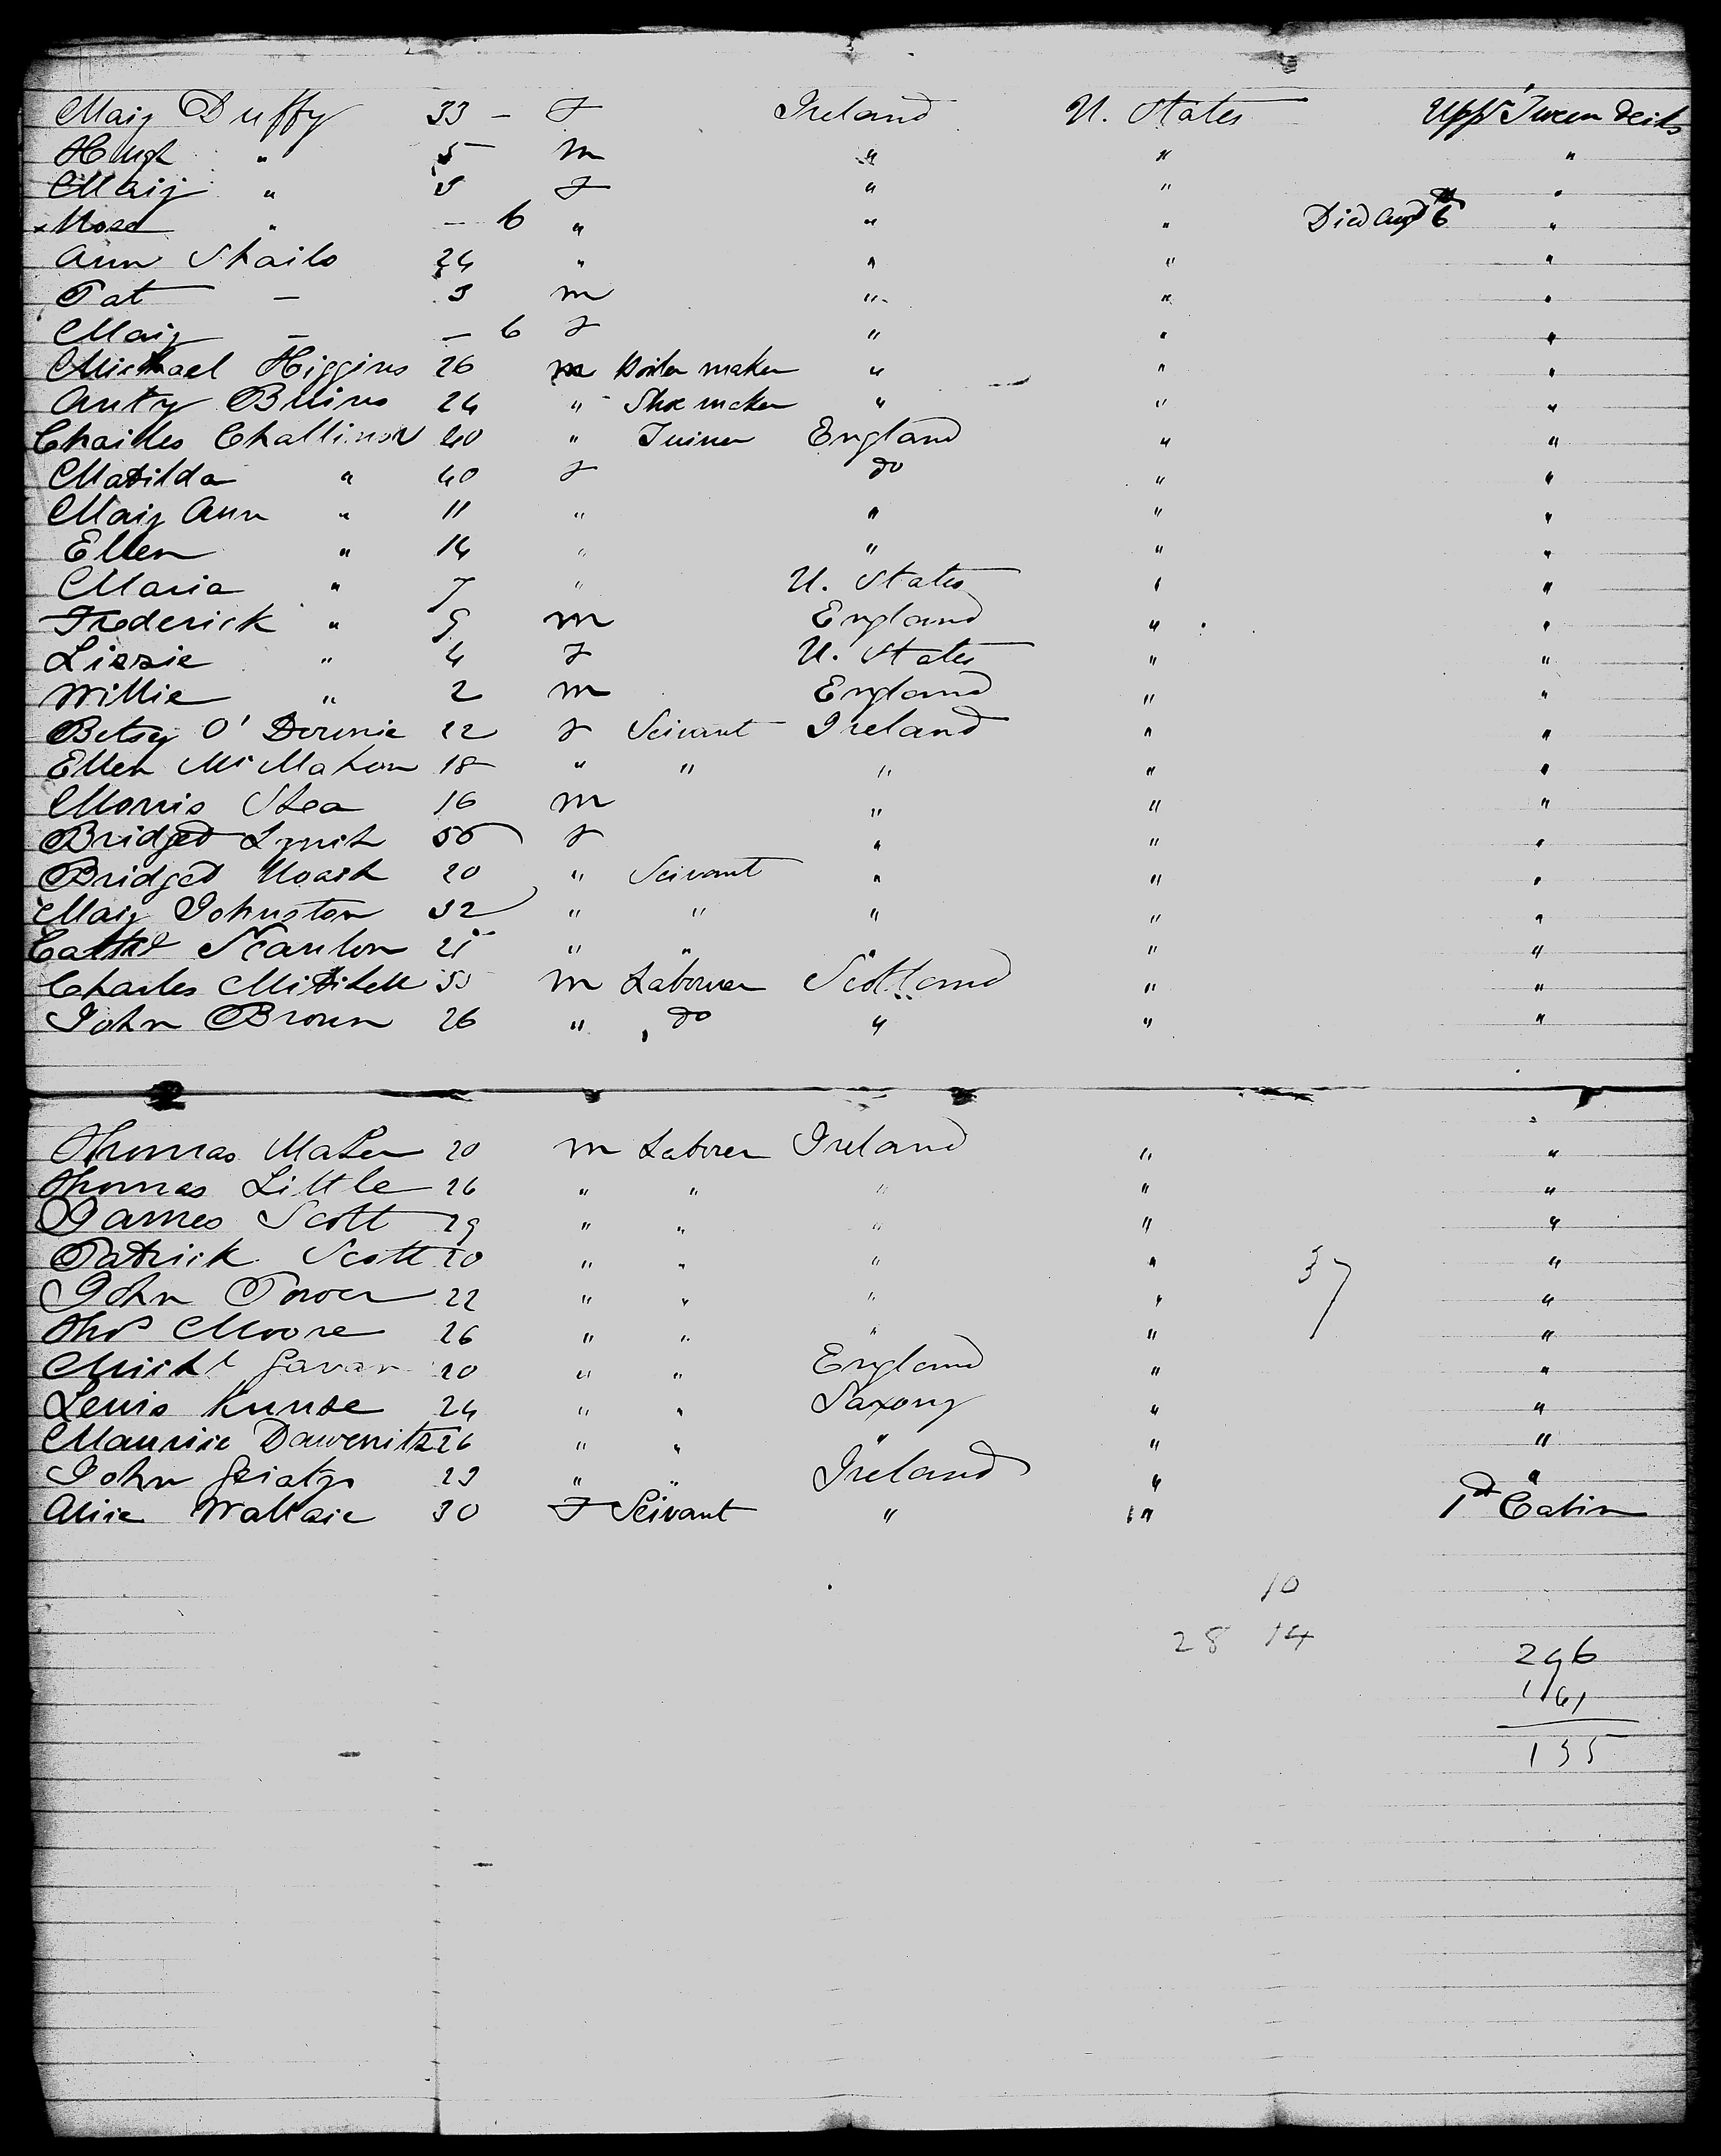 Mary Duffy 33 - F Ireland U. States Uppr Tween decks
Hugh " 5 m " " "
Mary " 3 F " " "
x Rose " - 6 " " " Died Augt 6th "
Ann Shails 24 " " " "
Pat - 3 m " " "
Mary - - 6 F " " "
Michael Higgins 26 m Boiler maker " " "
Anty Bruins 24 " Shoe maker " " "
Charles Challinor 40 " Juiner England " "
Matilda " 40 F do " "
Mary Ann " 11 " " " "
Ellen " 14 " " " "
Maria " 7 " U. States " "
Frederick " 9 m England " "
Lizzie " 4 F U. States " "
Willie " 2 m England " "
Betsy O' Dennie 22 F Servant Ireland " "
Ellen McMahon 18 " " " " "
Morris Shea 16 m " " "
Bridged Lynch 50 F " " "
Bridged Roach 20 " Servant " " "
Mary Johnston 32 " " " " "
Cathe Scanlon 21 " " " " "
Charles Mitchell 55 m Laborer Scotland " "
John Brown 26 " do " " "
Thomas Maher 20 m Laborer Ireland " "
Thomas Little 26 " " " " "
James Scott 29 " " " " "
Patrick Scott 20 " " " " "
37
John Power 22 " " " " "
Thos Moore 26 " " " " "
Michl Gavan 20 " " England " "
Lewis Kunze 24 " " Saxony " "
Maurice Dawenitz 26 " " " " "
John 29 " " Ireland " "
Alice Wallace 30 F Servant " " 1st Cabin
10
28 14
296
161
135